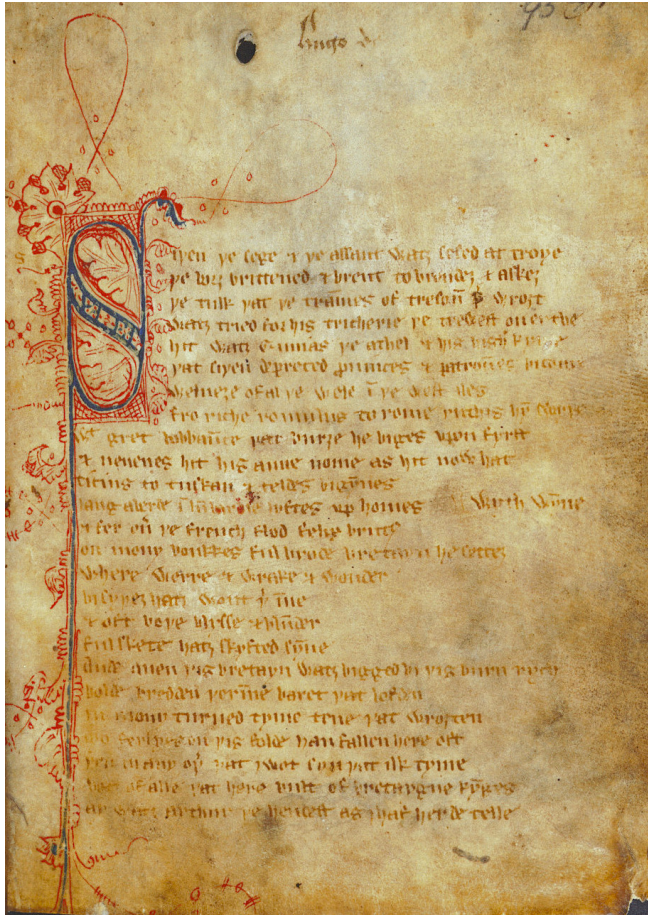 Hugo de
Siþen þe sege & þe assaut watz sesed at troye
þe borȝ brittened & brent to brondez & askez
þe tulk þat þe trammes of tresoū þ̄ wroȝt
Watz tried for his tricherie þe trewest on erthe
hit watz Ennias þe athel & his highe kynde
þat siþen depreced prouinces & patrounes bicome
Welneȝe of al þe wele ī þe west iles
fro riche romulus to rome ricchis hȳ swyþe
gret bobbaūce þat burȝe he biges vpon fyrst
& neuenes hit his aune nome as hit now hat
ticius to tuskan & teldes bigȳnes
langaberde ī lumbardie lyftes vp homes wyth wȳne
& fer oū þe french flod felix brutꝰ
on mony bonkkes ful brode bretayn he settez
where werre & wrake & wonder
bi syþez hatz wont þ̄ īne
& oft boþe blysse & blūder
ful skete hatz skyfted sȳne
Ande quen þis bretayn watz bigged bi þis burn rych
bolde bredden þerīne baret þat lofden
in mony turned tyme tene þat wroȝten
mo ferlyes on þis folde han fallen here oft
þen in any oþ̄ þat I wot syn þat ilk tyme
bot of alle þat here bult of bretaygne kȳges
ay watz arthur þe hendest as I haf herde telle